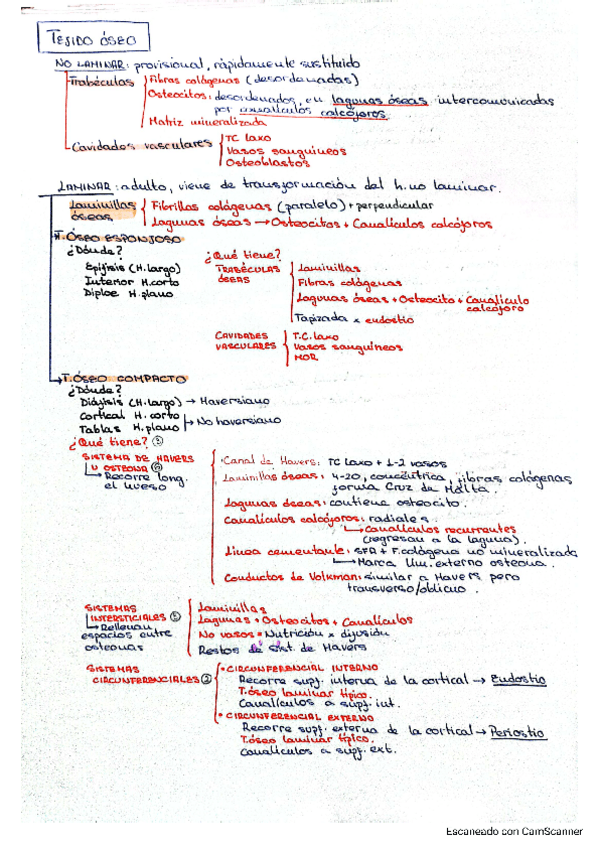 TEJIDO ÓSEO
NO LAMINAR: provisional, rápidamente sustituido
Trabéculas
Fibras colágenas (desordenadas)
Osteocitos: desordenados, en lagunas óseas intercomunicadas
por canalículos calcóforos.
Matriz mineralizada
Cavidades vasculares
TC laxo
Vasos sanguíneos
Osteoblastos
LAMINAR: adulto, viene de transformación del h. no laminar.
Laminillas óseas
Fibrillas colágenas (paralelo) + perpendicular
Lagunas óseas → Osteocitos + Canalículos calcóforos
T. ÓSEO ESPONJOSO
¿Dónde?
Epífisis (H. largo)
Interior H. corto
Diploe H. plano
¿Qué tiene?
TRABÉCULAS ÓSEAS
Laminillas
Fibras colágenas
Lagunas óseas + Osteocito + Canalículo
calcóforo
Tapizada x endostio
CAVIDADES VASCULARES
T.C. laxo
Vasos sanguíneos
MOR.
T. ÓSEO COMPACTO
¿Dónde?
Diáfisis (H. largo) → Haversiano
Cortical H. corto
Tablas H. plano
→ No haversiano
¿Qué tiene?
SISTEMA DE HAVERS
U OSTEONA
Recorre long.
el hueso
Canal de Havers: TC laxo + 1-2 vasos
Laminillas óseas: 4-20, concéntrica, fibras colágenas
forma Cruz de Malta.
Lagunas óseas: contiene osteocito.
Canalículos calcóforos: radiales
Canalículos recurrentes
(regresan a la laguna).
Línea cementante: SFA + F. colágena no mineralizada
Marca lím. externo osteona.
Conductos de Volkman: similar a Havers pero
transverso/oblicuo.
SISTEMAS
INTERSTICIALES
Rellenan
espacios entre
osteonas
Laminillas
Lagunas + Osteocitos + Canalículos
No vasos = Nutrición x difusión
Restos de sist. de Havers
SISTEMAS
CIRCUNFERENCIALES
• CIRCUNFERENCIAL INTERNO
Recorre supf. interna de la cortical → Endostio
T. óseo laminar típico.
Canalículos a supf. int.
• CIRCUNFERENCIAL EXTERNO
Recorre supf. externa de la cortical → Periostio
T. óseo laminar típico.
Canalículos a supf. ext.
Escaneado con CamScanner